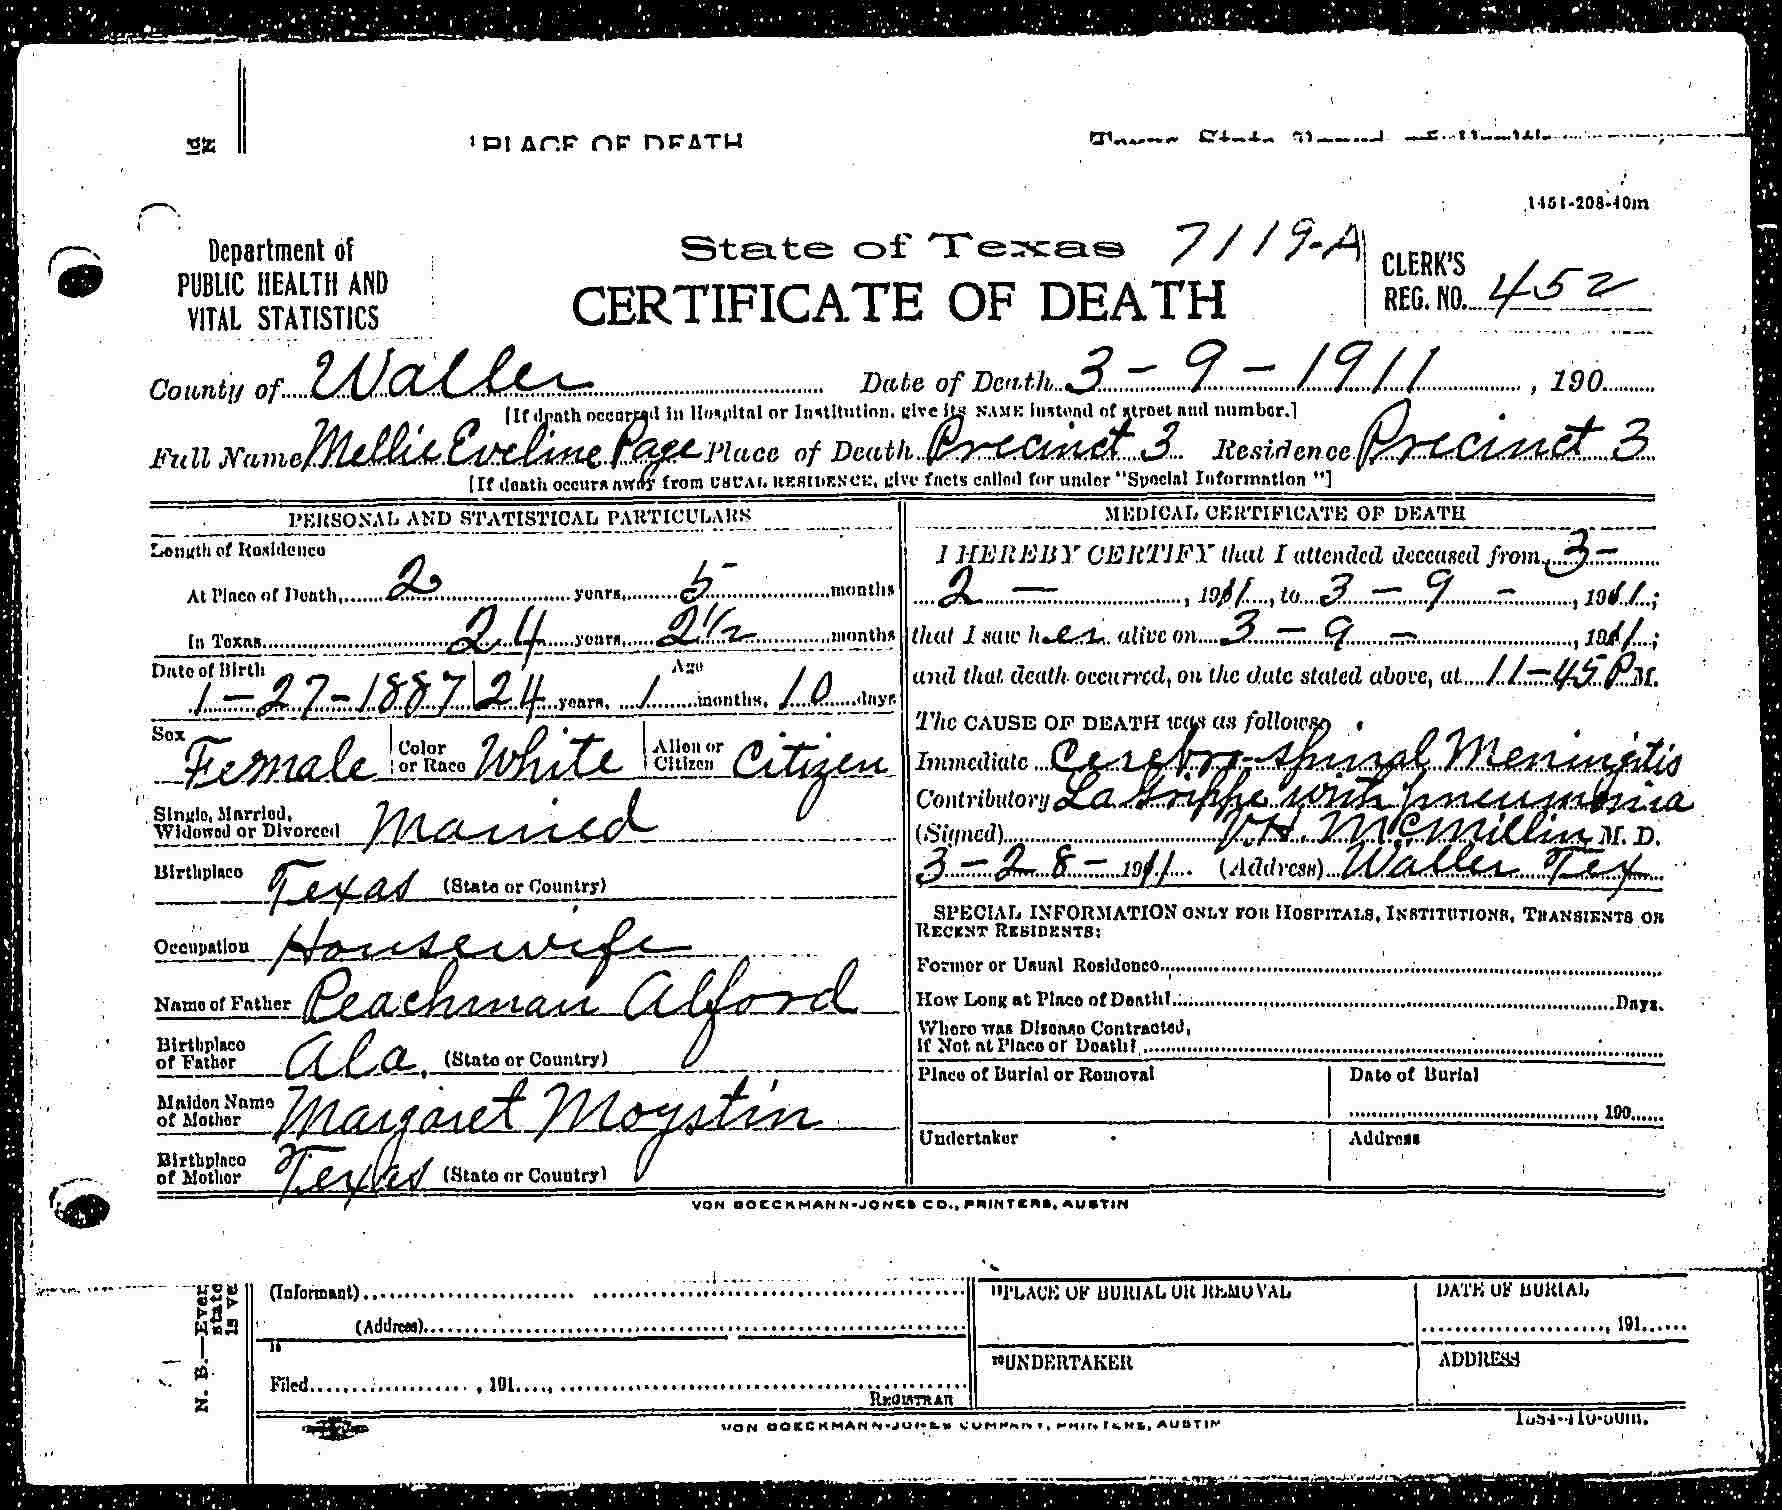 PLACE OF DEATH
1451-208-40m
Department of
PUBLIC HEALTH AND
VITAL STATISTICS
State of Texas 7119-A
CERTIFICATE OF DEATH
CLERK'S
REG. NO. 452
County of Waller Date of Death 3-9-1911, 190
[If death occurred in Hospital or Institution, give its NAME instead of street and number.]
Full Name Mellie Eveline Page Place of Death Precinct 3 Residence Precinct 3
[If death occurs away from USUAL RESIDENCE, give facts called for under "Special Information"]
PERSONAL AND STATISTICAL PARTICULARS
Length of Residence
At Place of Death, 2 years, 5 months
In Texas 24 years, 2 1/2 months
Date of Birth Age
1-27-1887 24 years, 1 months, 10 days
Sex Female Color or Race White Alien or Citizen Citizen
Single, Married,
Widowed or Divorced Married
Birthplace Texas (State or Country)
Occupation Housewife
Name of Father Peachman Alford
Birthplace
of Father Ala. (State or Country)
Maiden Name
of Mother Margaret Moystin
Birthplace
of Mother Texas (State or Country)
MEDICAL CERTIFICATE OF DEATH
I HEREBY CERTIFY that I attended deceased from 3-
2-, 1911, to 3-9-, 1911;
that I saw her alive on 3-9-, 1911;
and that death occurred, on the date stated above, at 11-45 P M.
The CAUSE OF DEATH was as follows:
Immediate Cerebro-spinal Meningitis
Contributory La Grippe with pneumonia
(Signed) V.H. McMillin M. D.
3-28-1911. (Address) Waller Tex
SPECIAL INFORMATION ONLY FOR HOSPITALS, INSTITUTIONS, TRANSIENTS OR
RECENT RESIDENTS:
Former or Usual Residence
How Long at Place of Death? Days.
Where was Disease Contracted,
If Not at Place of Death?
Place of Burial or Removal Date of Burial
, 190
Undertaker Address
VON BOECKMANN-JONES CO., PRINTERS, AUSTIN
N. B.—Every
state
is ve
(Informant)
(Address)
Filed , 191 ,
REGISTRAR
PLACE OF BURIAL OR REMOVAL DATE OF BURIAL
, 191
UNDERTAKER ADDRESS
VON BOECKMANN-JONES COMPANY, PRINTERS, AUSTIN